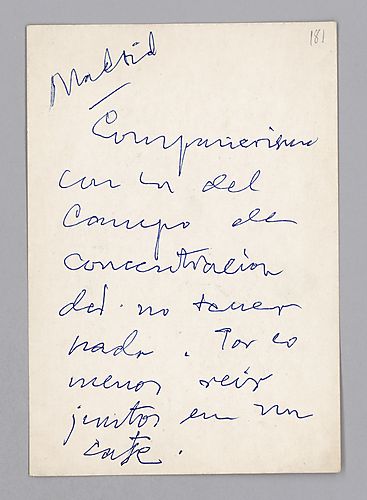 181
Madrid
Companerismo
con lo del
Campo de
concentracion
del no tener
nada. Por lo
menos reir
juntos en un
cafe.